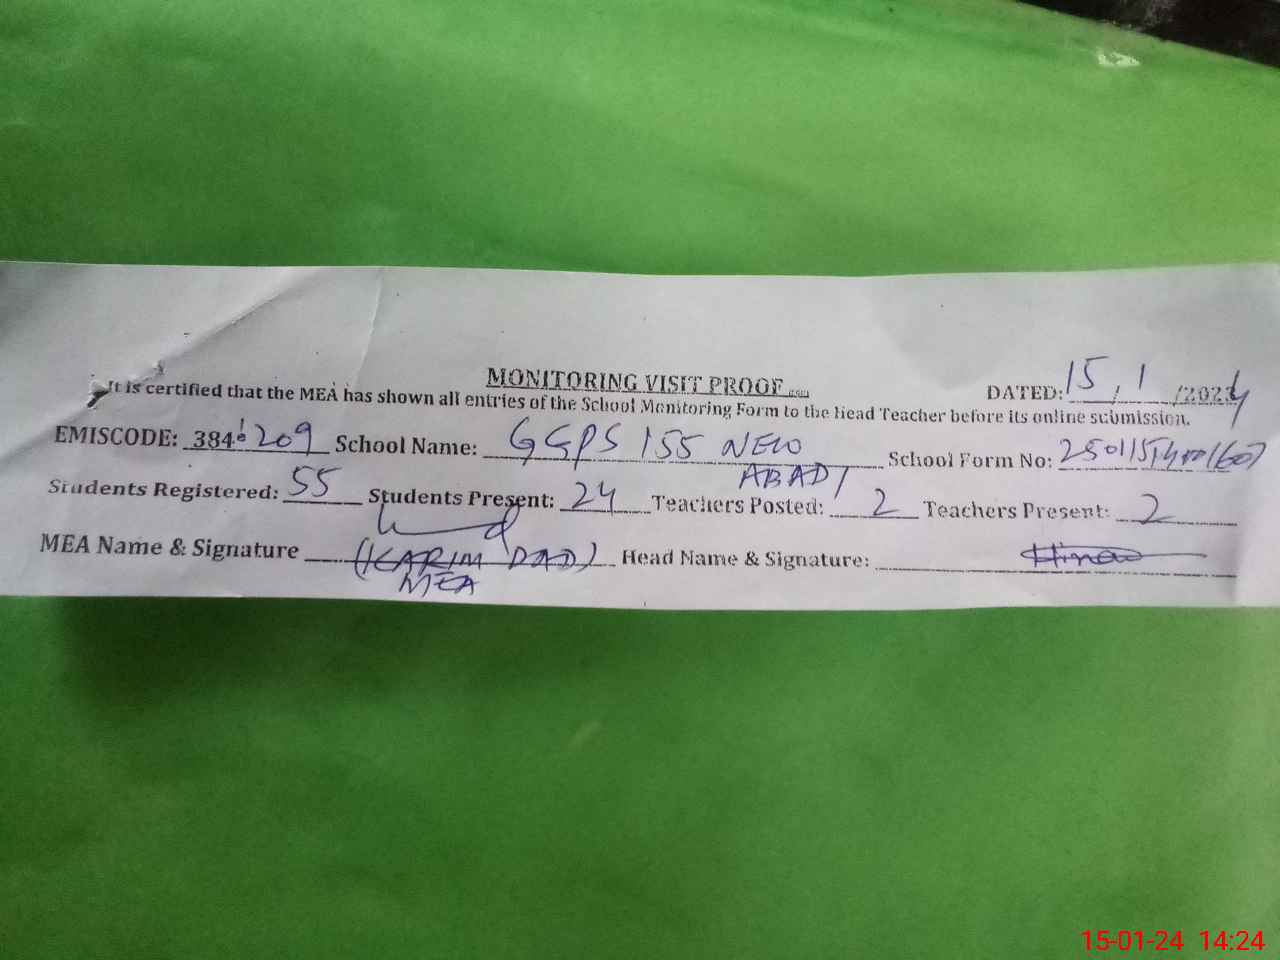 MONITORING VISIT PROOF
DATED: 15, 1 /2024
It is certified that the MEA has shown all entries of the School Monitoring Form to the Head Teacher before its online submission.
EMISCODE: 384 209 School Name: GGPS 155 NEW ABADI School Form No:
Students Registered: 55 Students Present: 24 Teachers Posted: 2 Teachers Present: 2
MEA Name & Signature (KARIM DAD) MEA Head Name & Signature: Hina
15-01-24 14:24